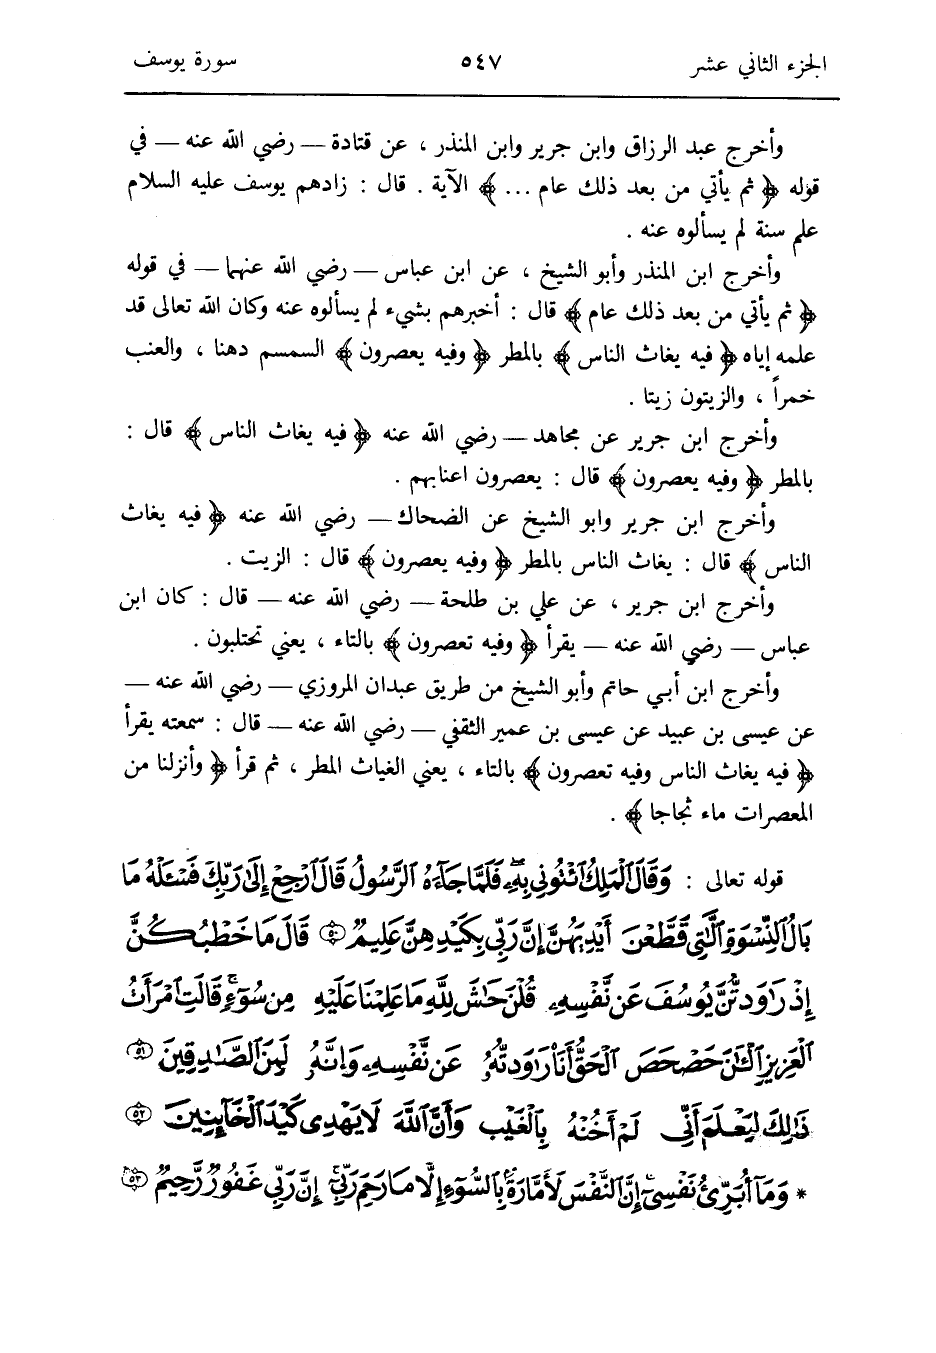 الجزء الثاني عشر ٥٤٧ سورة يوسف
وأخرج عبد الرزاق وابن جرير وابن المنذر ، عن قتادة — رضي الله عنه — في
قوله ﴿ ثم يأتي من بعد ذلك عام ... ﴾ الآية . قال : زادهم يوسف عليه السلام
علم سنة لم يسألوه عنه .
وأخرج ابن المنذر وأبو الشيخ ، عن ابن عباس — رضي الله عنهما — في قوله
﴿ ثم يأتي من بعد ذلك عام ﴾ قال : أخبرهم بشيء لم يسألوه عنه وكان الله تعالى قد
علمه إياه ﴿ فيه يغاث الناس ﴾ بالمطر ﴿ وفيه يعصرون ﴾ السمسم دهنا ، والعنب
خمراً ، والزيتون زيتا .
وأخرج ابن جرير عن مجاهد — رضي الله عنه ﴿ فيه يغاث الناس ﴾ قال :
بالمطر ﴿ وفيه يعصرون ﴾ قال : يعصرون اعنابهم .
وأخرج ابن جرير وابو الشيخ عن الضحاك — رضي الله عنه ﴿ فيه يغاث
الناس ﴾ قال : يغاث الناس بالمطر ﴿ وفيه يعصرون ﴾ قال : الزيت .
وأخرج ابن جرير ، عن علي بن طلحة — رضي الله عنه — قال : كان ابن
عباس — رضي الله عنه — يقرأ ﴿ وفيه تعصرون ﴾ بالتاء ، يعني تحتلبون .
وأخرج ابن أبي حاتم وأبو الشيخ من طريق عبدان المروزي — رضي الله عنه —
عن عيسى بن عبيد عن عيسى بن عمير الثقفي — رضي الله عنه — قال : سمعته يقرأ
﴿ فيه يغاث الناس وفيه تعصرون ﴾ بالتاء ، يعني الغياث المطر ، ثم قرأ ﴿ وأنزلنا من
المعصرات ماء ثجاجا ﴾ .
قوله تعالى : وَقَالَ ٱلْمَلِكُ ٱئْتُونِي بِهِۦۖ فَلَمَّا جَآءَهُ ٱلرَّسُولُ قَالَ ٱرْجِعْ إِلَىٰ رَبِّكَ فَسْـَٔلْهُ مَا
بَالُ ٱلنِّسْوَةِ ٱلَّٰتِي قَطَّعْنَ أَيْدِيَهُنَّ إِنَّ رَبِّي بِكَيْدِهِنَّ عَلِيمٌ ۝٥٠ قَالَ مَا خَطْبُكُنَّ
إِذْ رَٰوَدتُّنَّ يُوسُفَ عَن نَّفْسِهِۦ قُلْنَ حَٰشَ لِلَّهِ مَا عَلِمْنَا عَلَيْهِ مِن سُوٓءٍۚ قَالَتِ ٱمْرَأَتُ
ٱلْعَزِيزِ ٱلْـَٰٔنَ حَصْحَصَ ٱلْحَقُّ أَنَا۠ رَٰوَدتُّهُۥ عَن نَّفْسِهِۦ وَإِنَّهُۥ لَمِنَ ٱلصَّٰدِقِينَ ۝٥١
ذَٰلِكَ لِيَعْلَمَ أَنِّي لَمْ أَخُنْهُ بِٱلْغَيْبِ وَأَنَّ ٱللَّهَ لَا يَهْدِي كَيْدَ ٱلْخَآئِنِينَ ۝٥٢
* وَمَآ أُبَرِّئُ نَفْسِيٓۚ إِنَّ ٱلنَّفْسَ لَأَمَّارَةُۢ بِٱلسُّوٓءِ إِلَّا مَا رَحِمَ رَبِّيٓۚ إِنَّ رَبِّي غَفُورٌ رَّحِيمٌ ۝٥٣